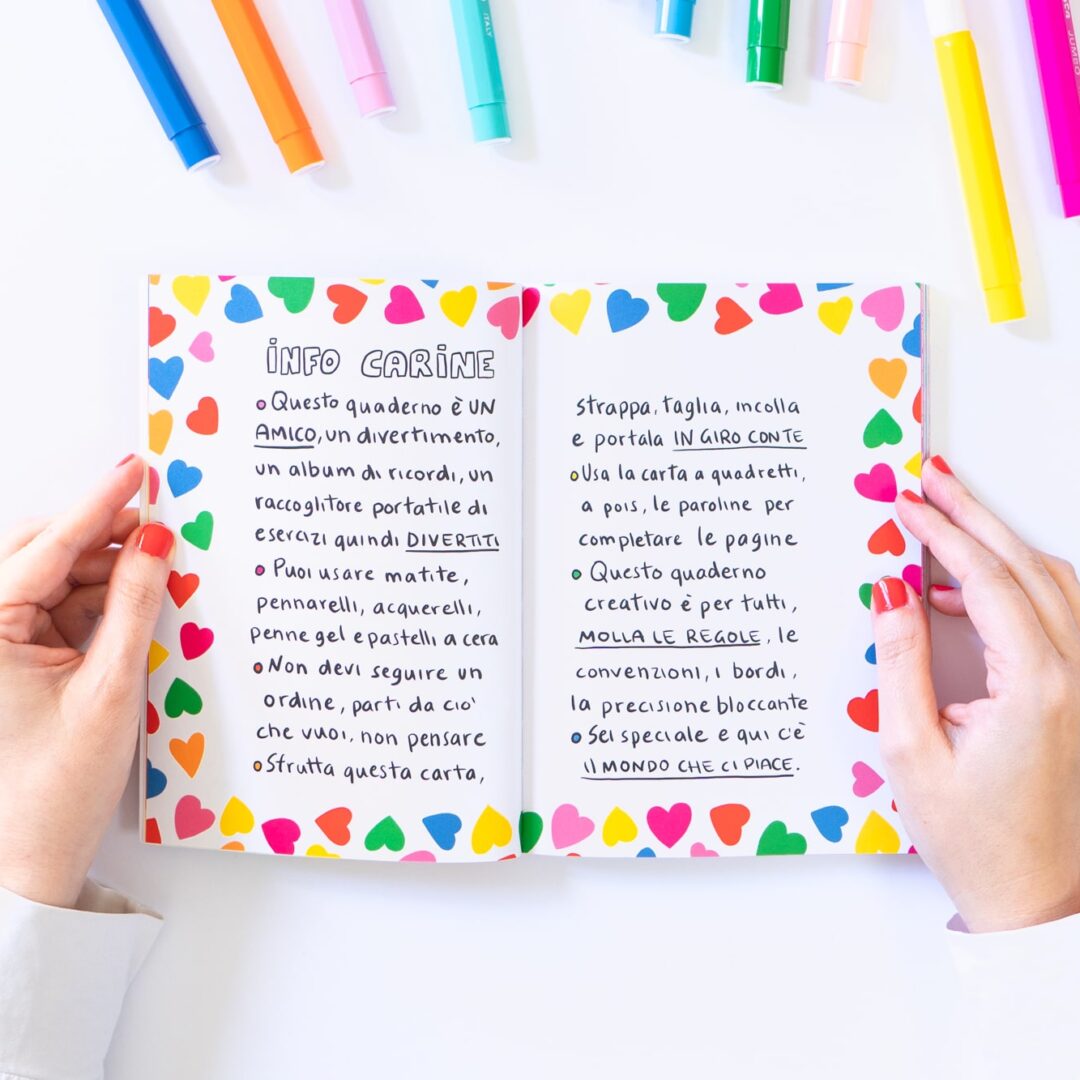 ITALY
CCA JUMBO
INFO CARINE
Questo quaderno è UN
AMICO, un divertimento,
un album di ricordi, un
raccoglitore portatile di
esercizi quindi DIVERTITI
Puoi usare matite,
pennarelli, acquerelli,
penne gel e pastelli a cera
Non devi seguire un
ordine, parti da cio'
che vuoi, non pensare
Sfrutta questa carta,
strappa, taglia, incolla
e portala IN GIRO CON TE
Usa la carta a quadretti,
a pois, le paroline per
completare le pagine
Questo quaderno
creativo è per tutti,
MOLLA LE REGOLE, le
convenzioni, i bordi,
la precisione bloccante
Sei speciale e qui c'è
il MONDO CHE CI PIACE.